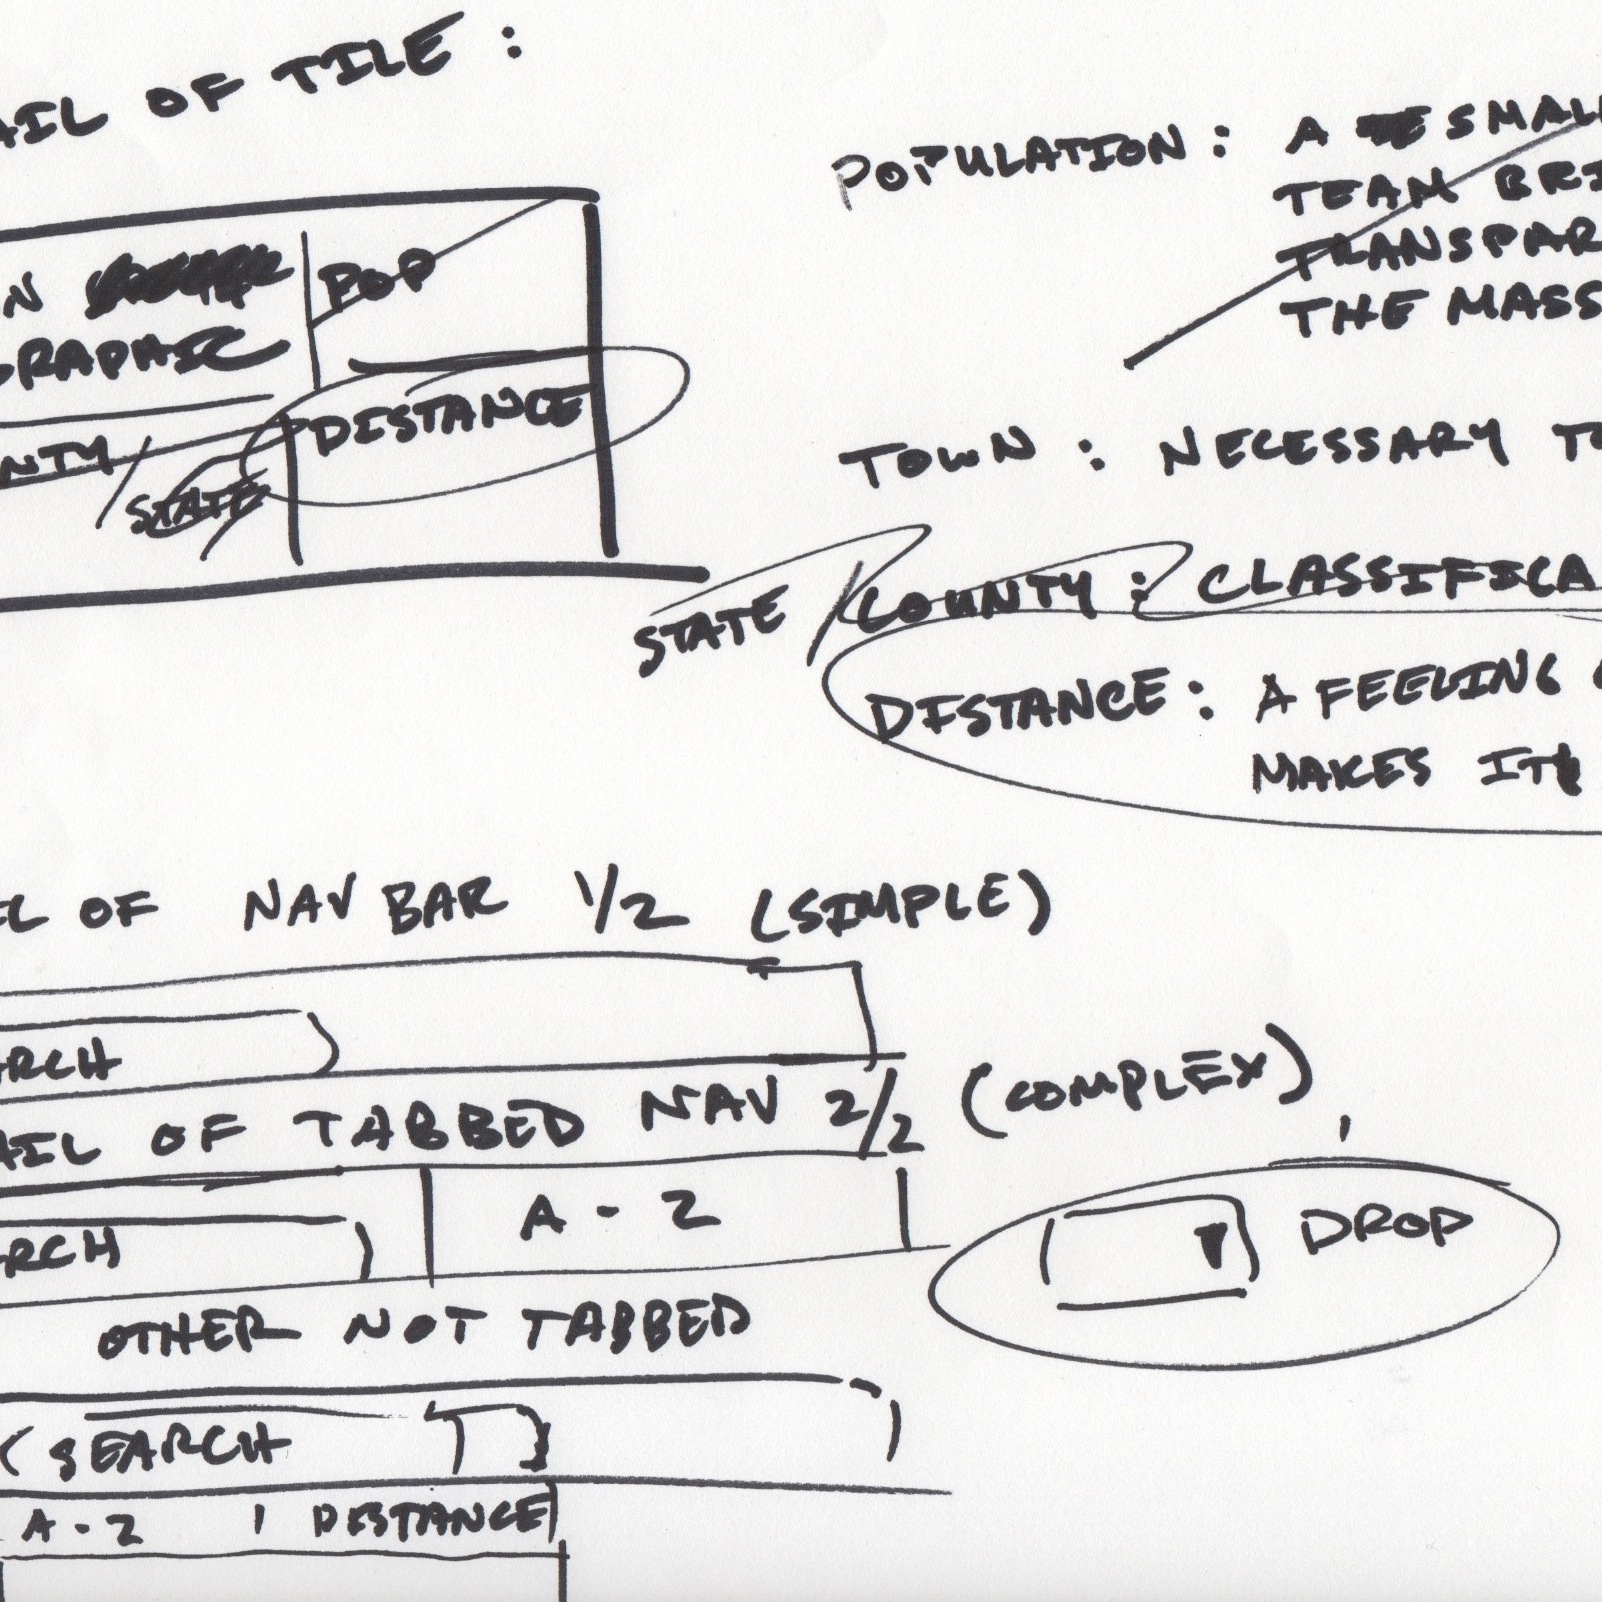 AIL OF TILE :
N
GRAPHIC
POP
NTY /
STATE
DISTANCE
POPULATION : A SMALL
TEAM BRI
TRANSPAR
THE MASS
TOWN : NECESSARY TO
STATE / COUNTY : CLASSIFICA
DISTANCE : A FEELING
MAKES IT
IL OF NAV BAR 1/2 (SIMPLE)
ARCH
AIL OF TABBED NAV 2/2 (COMPLEX)
ARCH
A - Z
DROP
OTHER NOT TABBED
(SEARCH
A - Z | DISTANCE